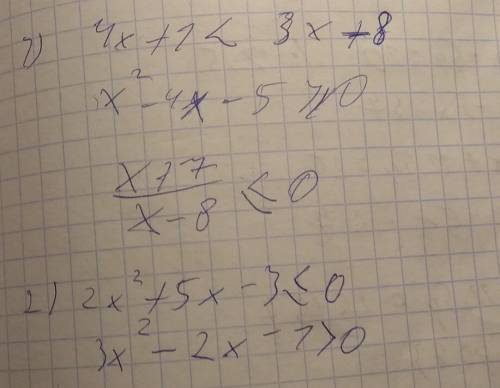 1) 4x + 1 < 3x + 8
x² - 4x - 5 > 0
x + 7 / x - 8 ≤ 0
2) 2x² + 5x - 3 ≤ 0
3x² - 2x - 1 > 0